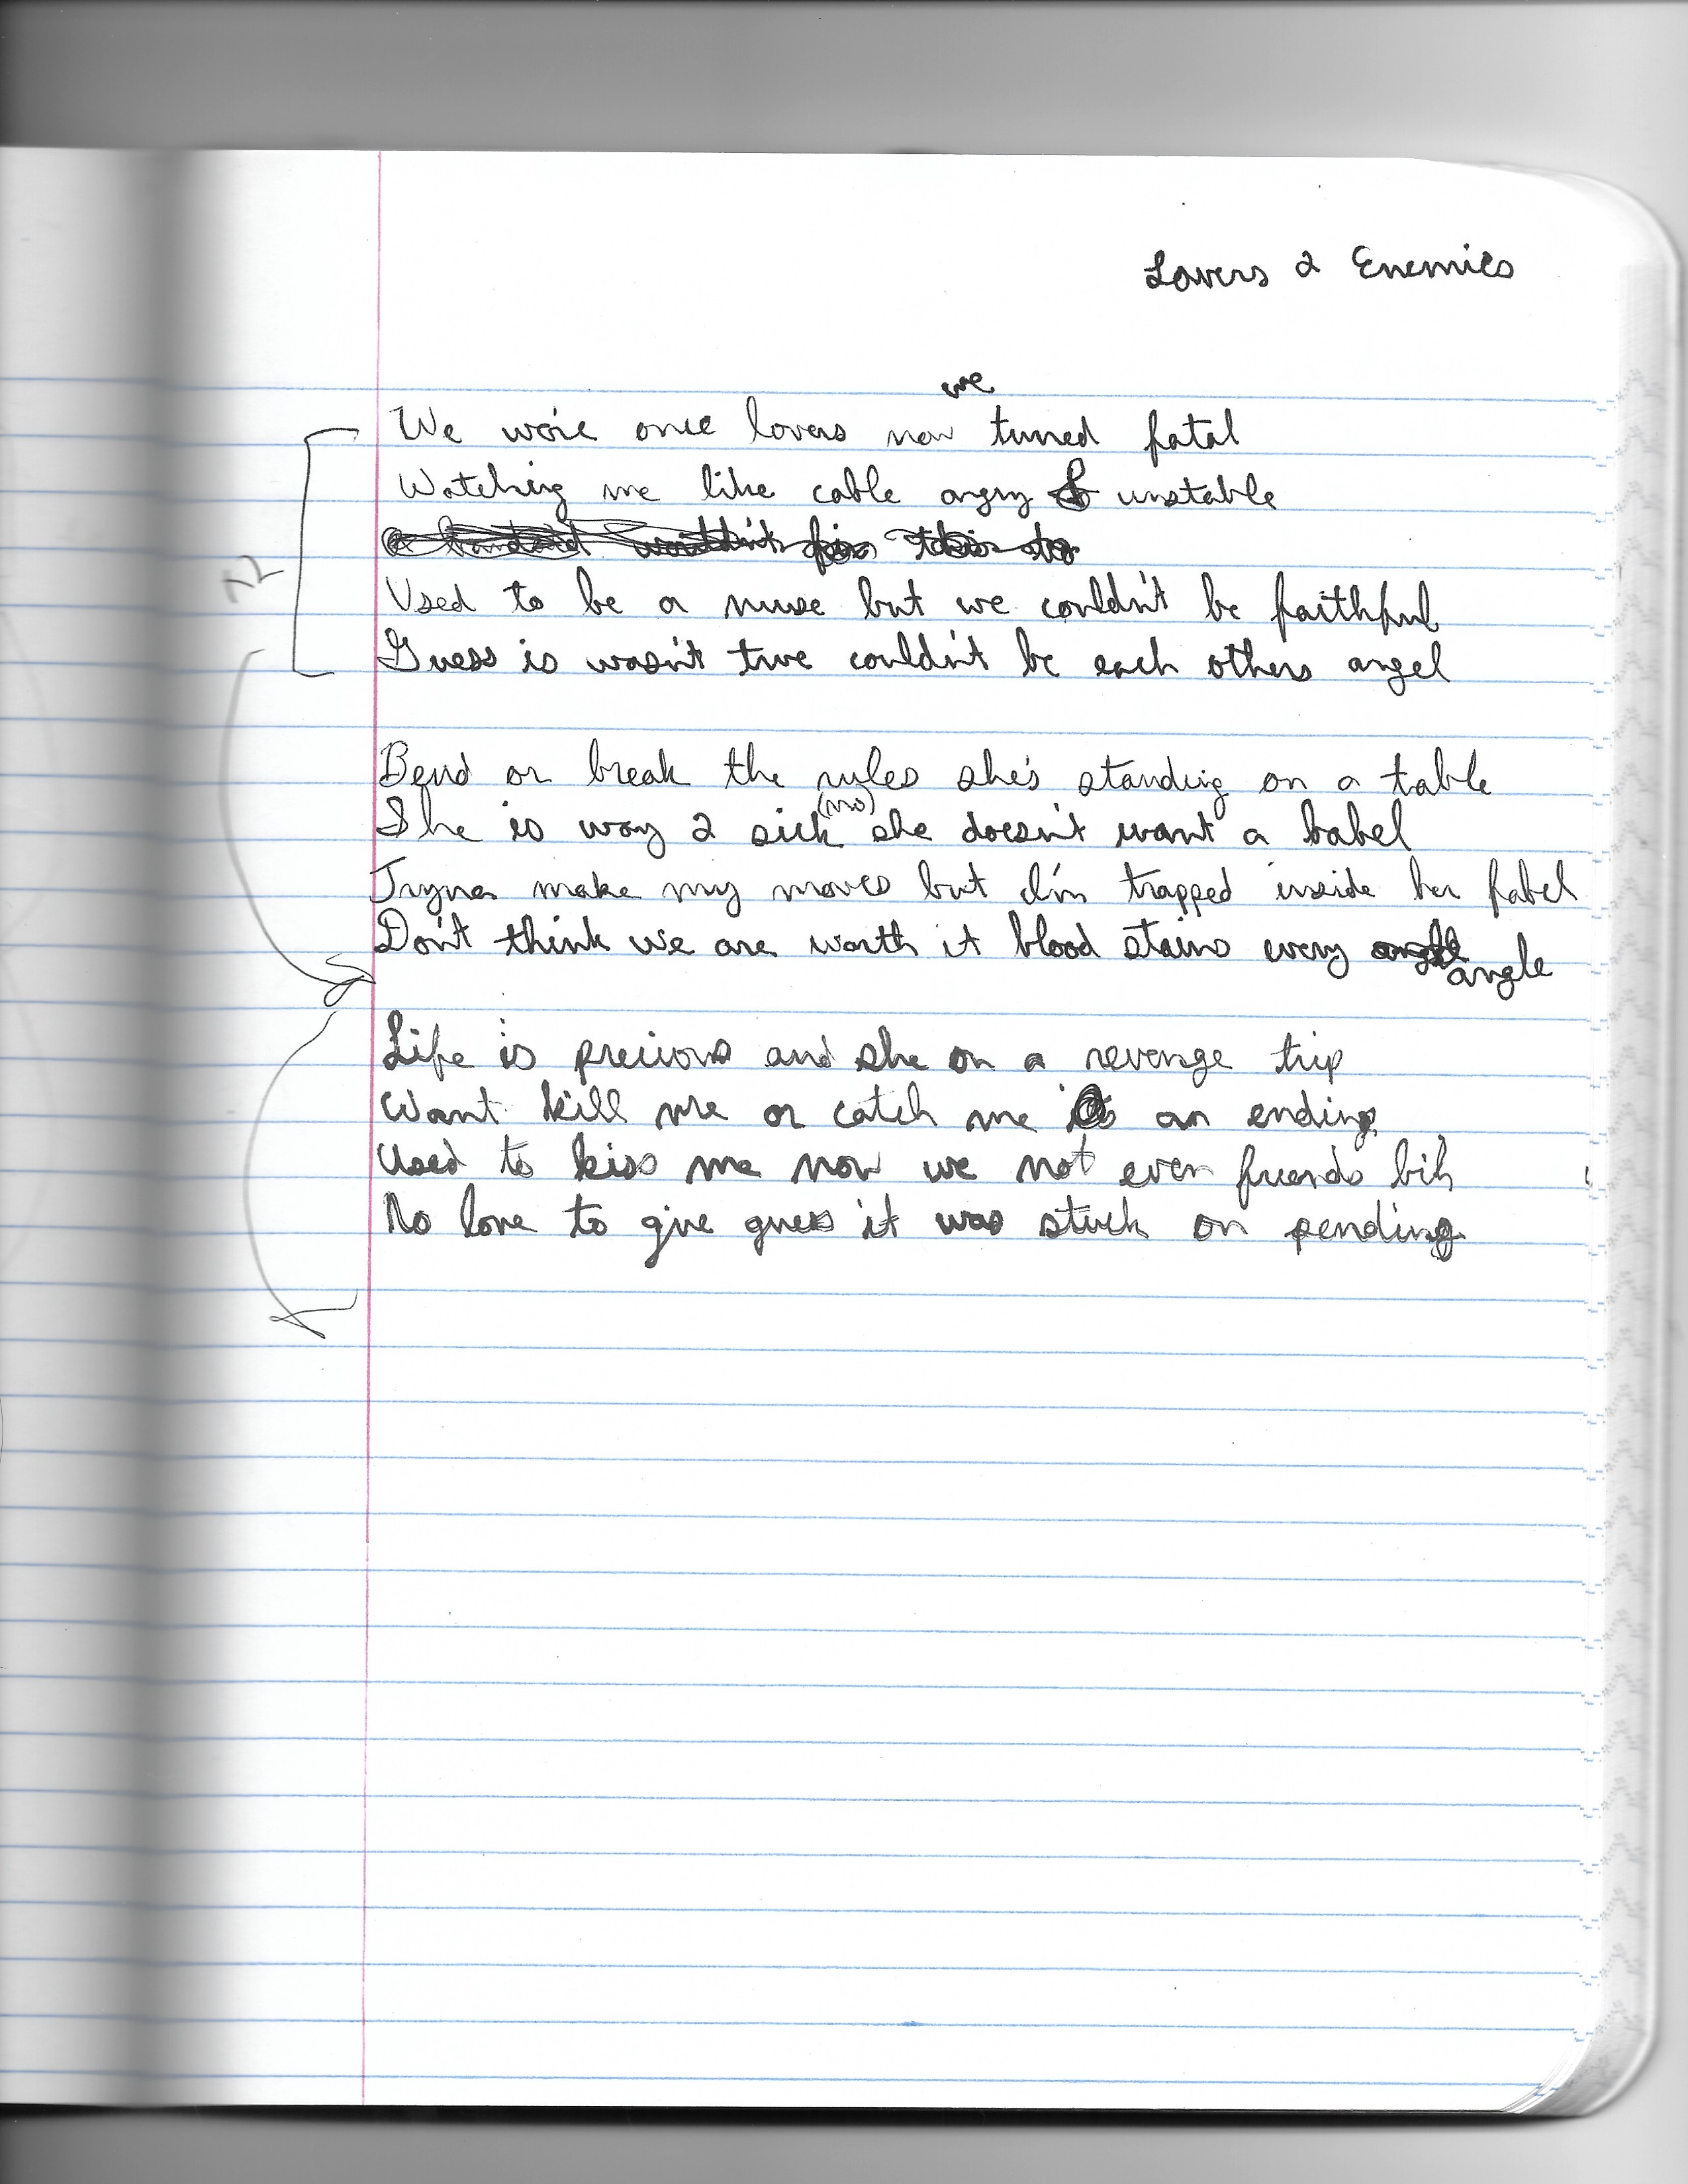 Lovers 2 Enemies
We were once lovers now we turned fatal
Watching me like cable angry & unstable
Used to be a muse but we couldn't be faithful
Guess is wasn't true couldn't be each others angel
Bend or break the rules she's standing on a table
She is way 2 sick (no) she doesn't want a babel
Tryna make my moves but I'm trapped inside her fabel
Don't think we are worth it blood stains every angle
Life is precious and she on a revenge trip
Want kill me or catch me is an ending
Used to kiss me now we not even friends bih
No love to give guess it was stuck on pending